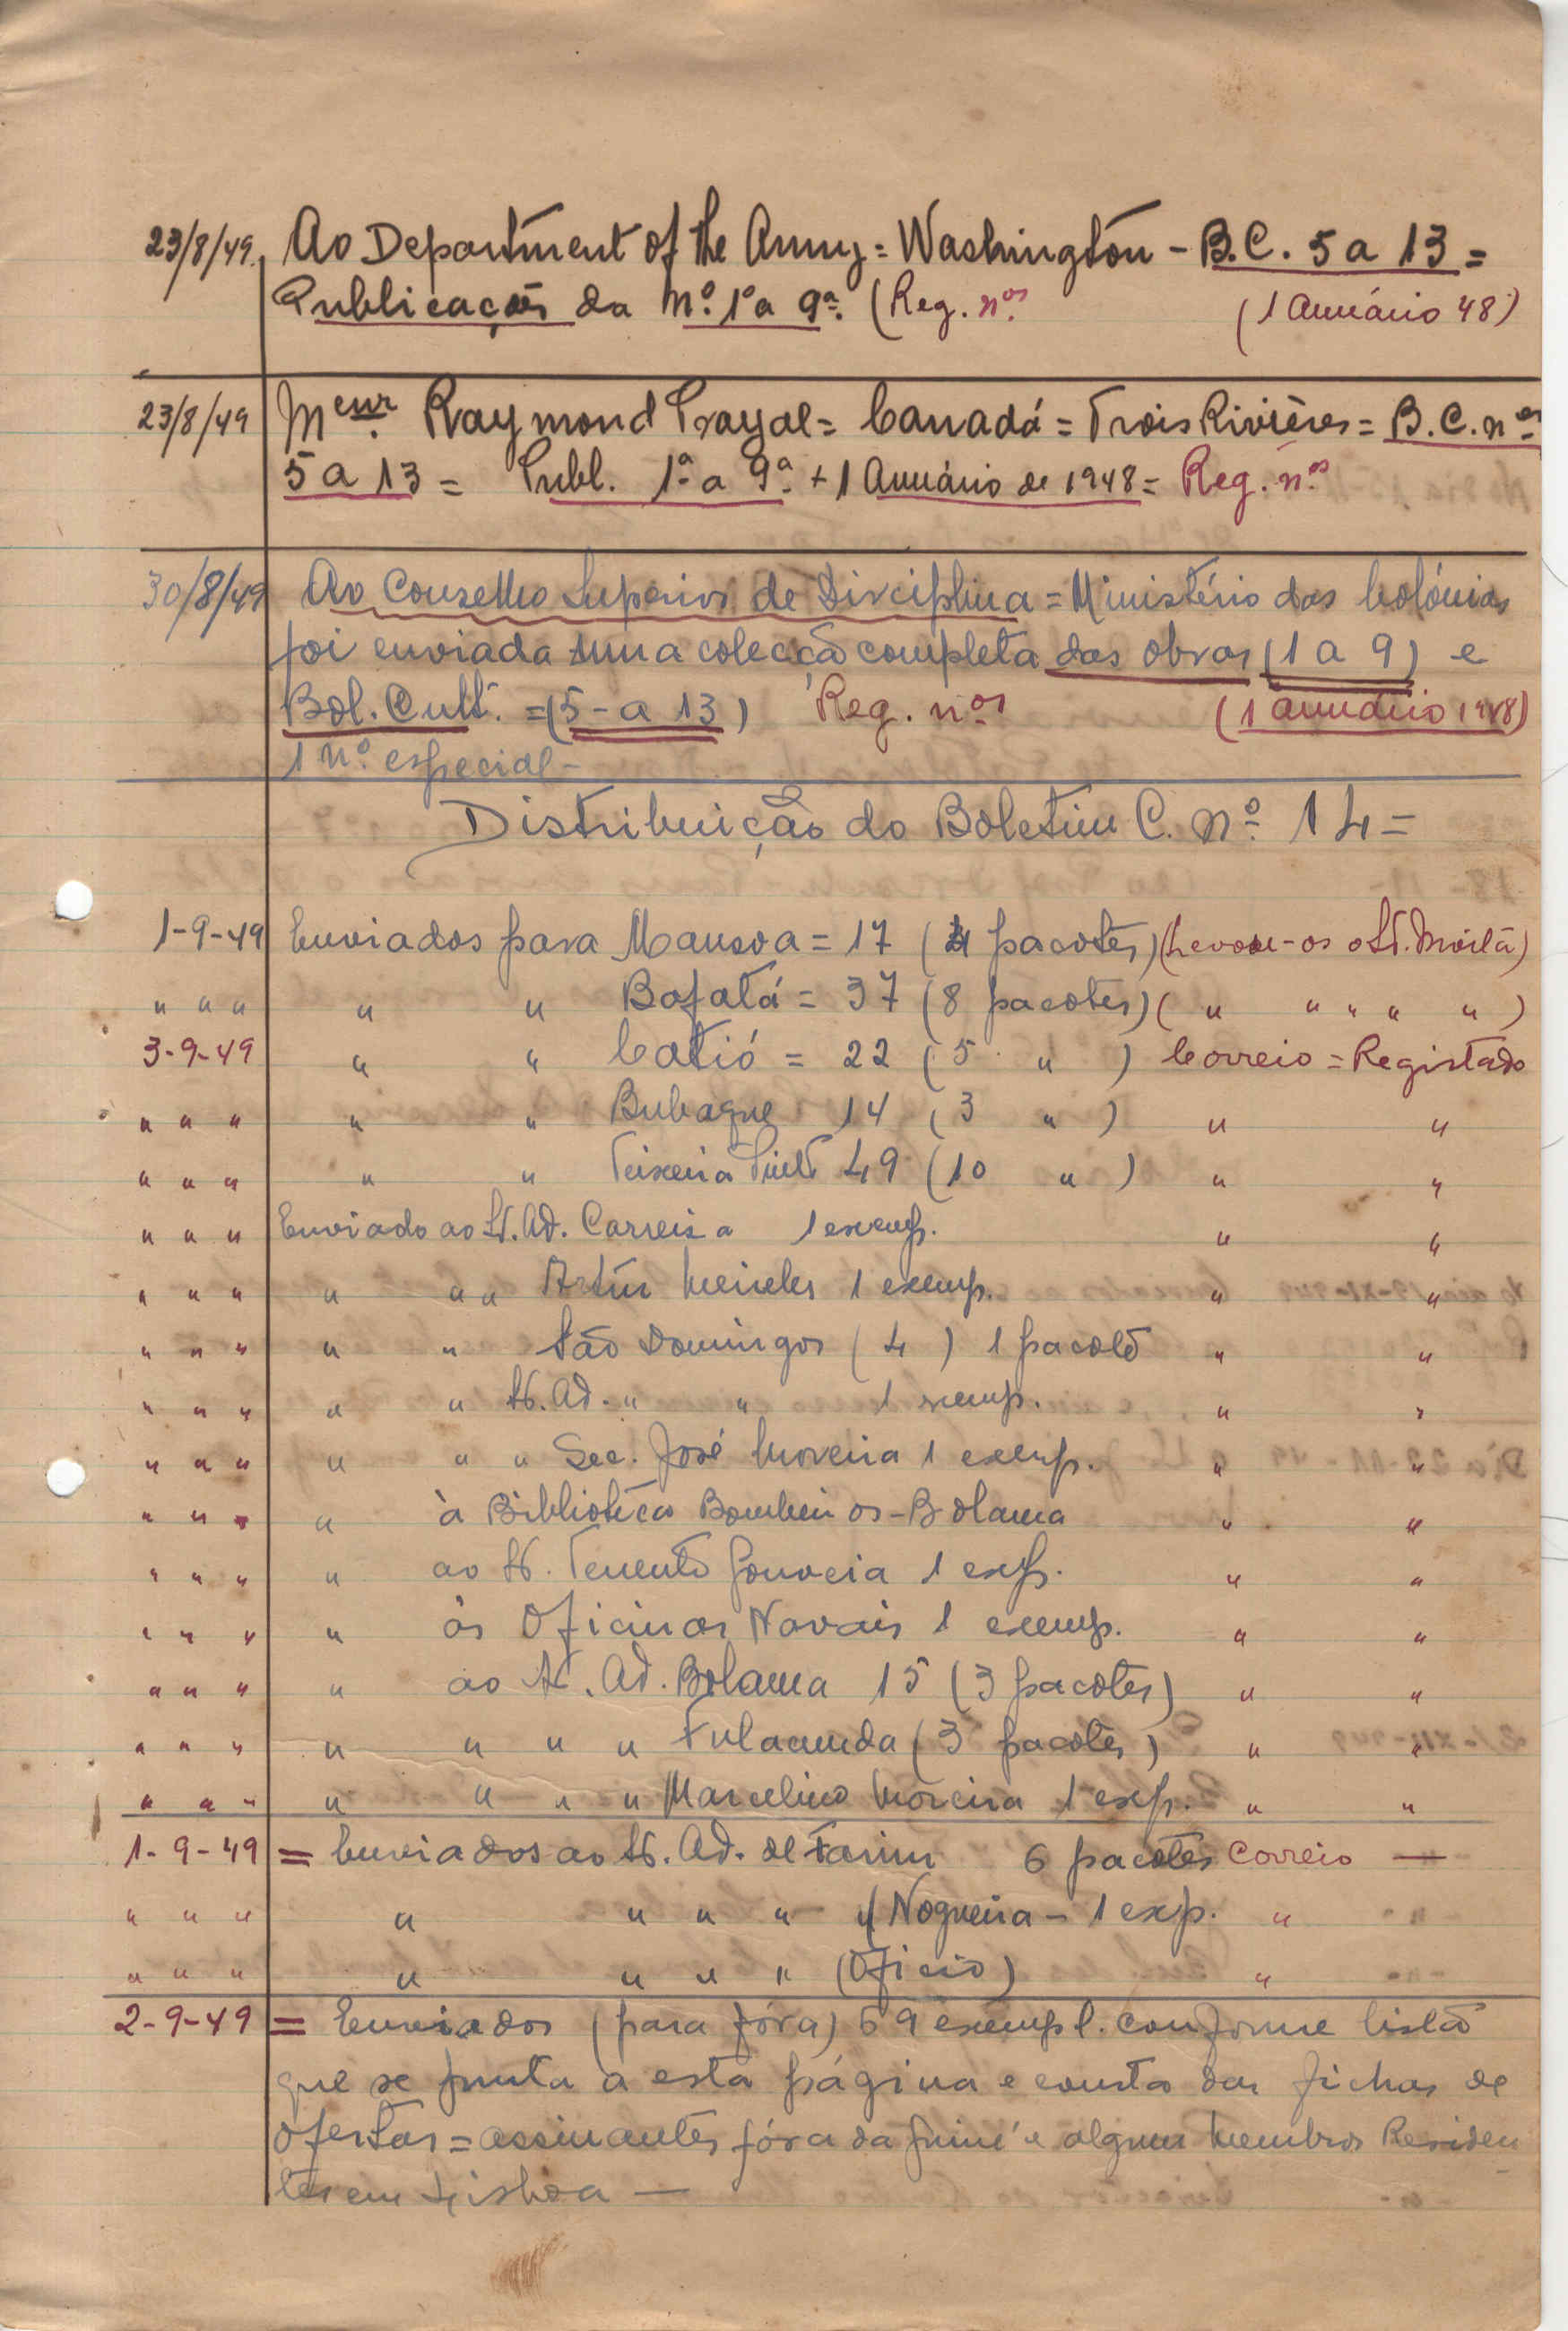 23/8/49. Ao Department of the Army = Washington - B.C. 5 a 13 =
Publicações da nº 1ª a 9ª. (Reg. nºs (1 Anuário 48)
23/8/49 Meur. Raymond = Canadá = Trois Rivières = B.C. nºs
5 a 13 = Publ. 1ª a 9ª + 1 Anuário de 1948 = Reg. nºs
30/8/49 Ao Conselho Superior de Disciplina = Ministério das Colónias
foi enviada uma colecção completa das obras (1 a 9) e
Bol. Cult. = (5 - a 13) Reg. nºs (1 anuário 1948)
1 nº especial -
Distribuição do Boletim C. nº 14 =
1-9-49 Enviados para Mansoa = 17 (4 pacotes) (Levou-os o Sr.
" " " " " Bafatá = 37 (8 pacotes) ( " " " " " )
3-9-49 " " Catió = 22 (5 " ) Correio = Registado
" " " " " Bubaque 14 (3 " ) " "
" " " " " Teixeira Pinto 49 (10 " ) " "
" " " Enviado ao Sr. Ad. Correia 1 exemp. " "
" " " " " " Artur Meireles 1 exemp. " "
" " " " " São Domingos (4) 1 pacote " "
" " " " " Sr. Ad. " " 1 exemp. " "
" " " " " " Sec. José Moreira 1 exemp. " "
" " " " à Biblioteca Bombeiros - Bolama " "
" " " " ao Sr. Tenente Gouveia 1 exp. " "
" " " " às Oficinas Navais 1 exemp. " "
" " " " ao Sr. Ad. Bolama 15 (3 pacotes) " "
" " " " " " " Fulacunda (3 pacotes) " "
" " " " " " " Marcelino Moreira 1 exp. " "
1-9-49 = Enviados ao Sr. Ad. de Farim 6 pacotes Correio —
" " " " " " " Nogueira - 1 exp. "
" " " " " " " (Oficio) "
2-9-49 = Enviados (para fóra) 69 exempl. conforme lista
que se junta a esta página e consta das fichas de
ofertas = assinantes fóra da Guiné e alguns Membros Residen
tes em Lisboa —